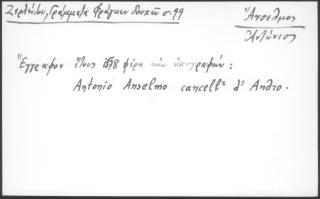 Ζερλέντου, Γράμματα Φράγκων δουκῶν σ. 99
Ἄνσελμος
Ἀντώνιος
Ἔγγραφον ἔτους 1598 φέρει τὴν ὑπογραφήν:
Antonio Anselmo cancellre d' Andro.